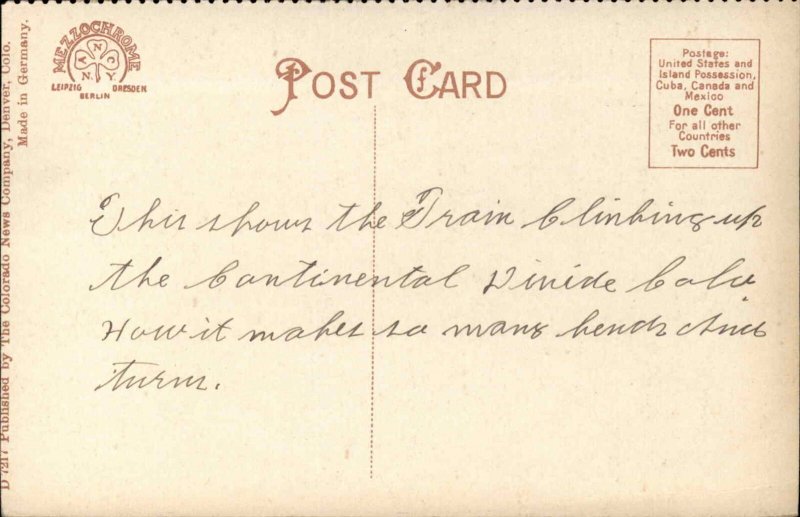 MEZZOCHROME
ANCY
LEIPZIG DRESDEN
BERLIN
POST CARD
Postage:
United States and
Island Possession,
Cuba, Canada and
Mexico
One Cent
For all other
Countries
Two Cents
This shows the Train Clinbing up
the Contineental Divide Colo
How it makes so many bends And
turns.
D 7217 Published by The Colorado News Company, Denver, Colo.
Made in Germany.